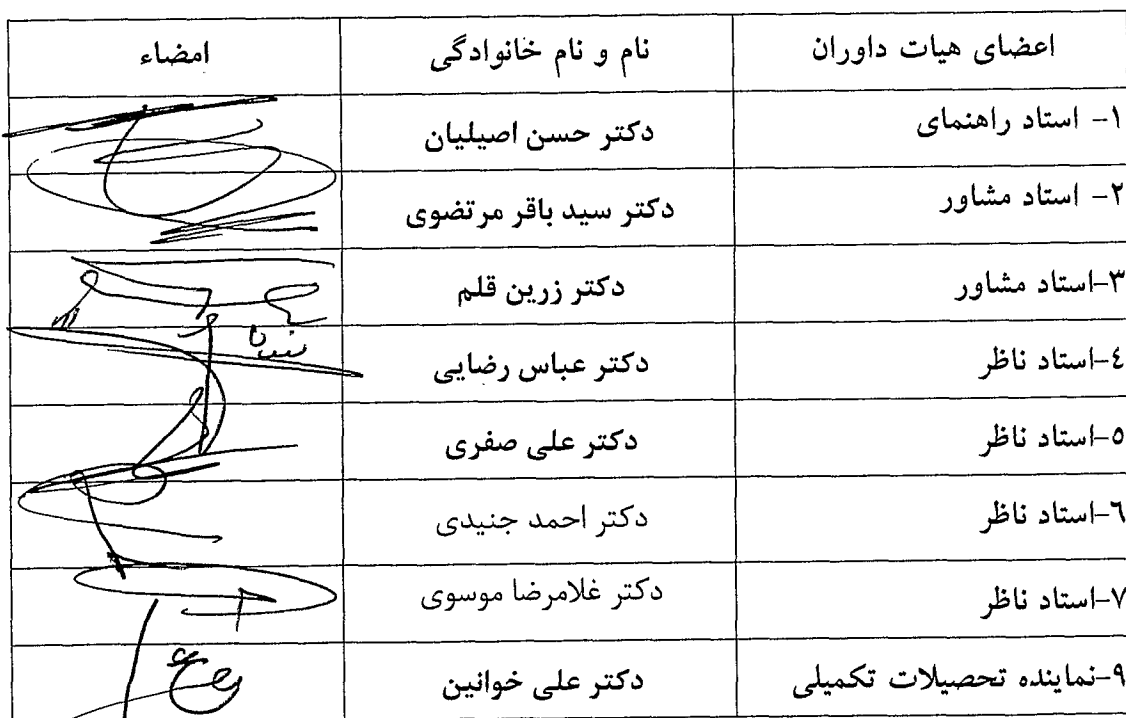 اعضای هیات داوران نام و نام خانوادگی امضاء
۱- استاد راهنمای دکتر حسن اصیلیان
۲- استاد مشاور دکتر سید باقر مرتضوی
۳-استاد مشاور دکتر زرین قلم
٤-استاد ناظر دکتر عباس رضایی
٥-استاد ناظر دکتر علی صفری
٦-استاد ناظر دکتر احمد جنیدی
۷-استاد ناظر دکتر غلامرضا موسوی
۹-نماینده تحصیلات تکمیلی دکتر علی خوانین